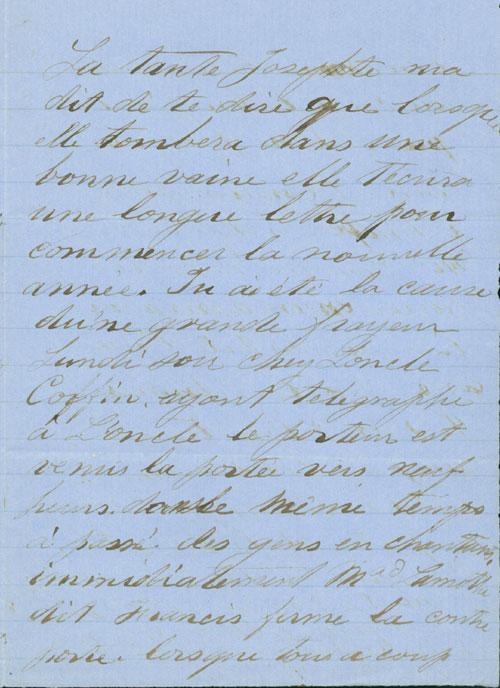 La tante Josephte ma
dit de te dire que lorsque
elle tombera dans une
bonne vaine elle t'ecrira
une longue lettre pour
commencer la nouvelle
année. Tu a été la cause
du'ne grande frayeur
Lundi soir chez Loncle
Coffin. ayant telegraphe
à Loncle le porteur est
venus la portee vers neuf
heurs. dans le même temps
à passé des gens en chantant,
immidiatement Mad Lamothe
dit Francis ferme la contre
porte. lorsque tous a coup